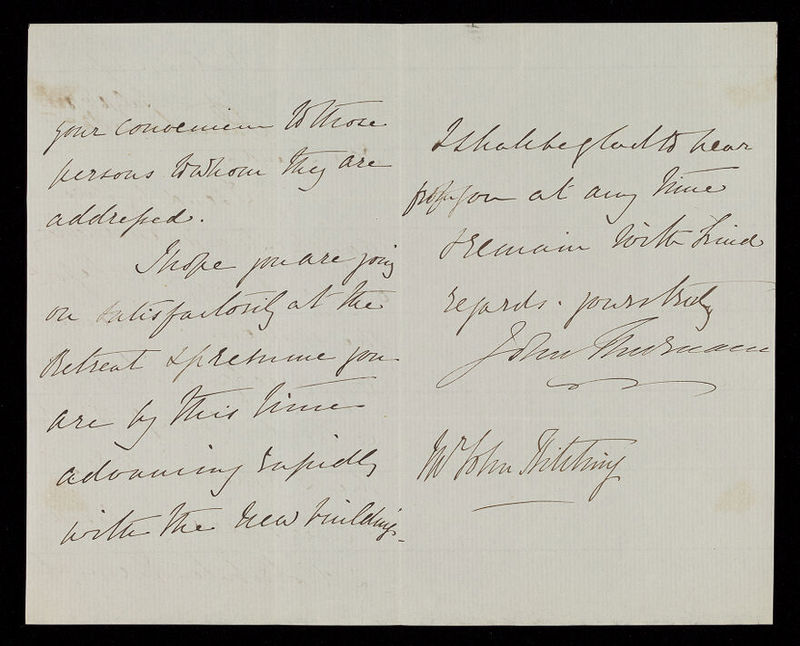 your convenience to those
persons to whom they are
addressed.
I hope you are going
on satisfactorily at the
Retreat & presume you
are by this time
advancing rapidly
with the new buildings.
I shall be glad to hear
from you at any time
& remain with kind
regards. yours truly
John Thurnam
Mr John Kitching